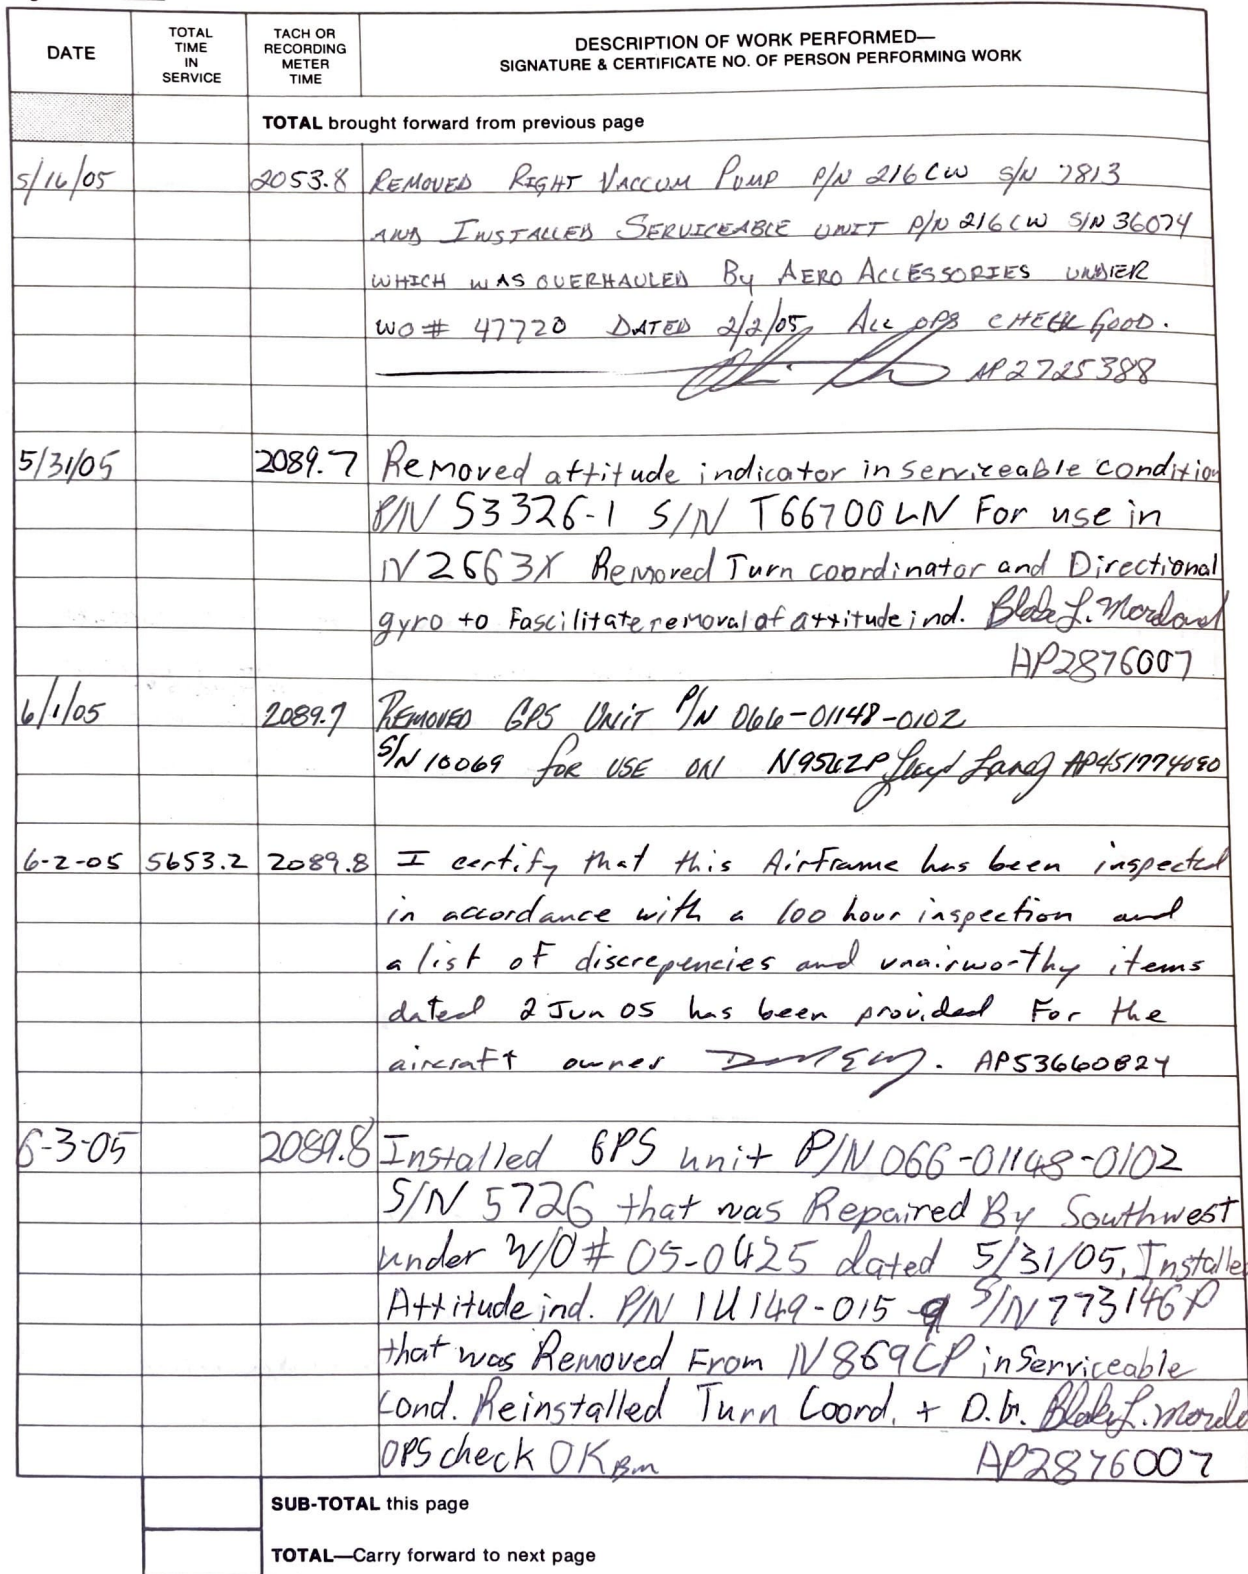 DATE
TOTAL TIME IN SERVICE
TACH OR RECORDING METER TIME
DESCRIPTION OF WORK PERFORMED—
SIGNATURE & CERTIFICATE NO. OF PERSON PERFORMING WORK
TOTAL brought forward from previous page
5/16/05 2053.8 REMOVED RIGHT VACCUM PUMP P/N 216CW S/N 7813
AND INSTALLED SERVICEABLE UNIT P/N 216CW S/N 36074
WHICH WAS OVERHAULED By AERO ACCESSORIES UNDER
WO# 47720 DATED 2/2/05, ALL OPS CHECK GOOD.
AP2725388
5/31/05 2089.7 Removed attitude indicator in serviceable condition
P/N S3326-1 S/N T66700LN For use in
N2663X Removed Turn coordinator and Directional
gyro to Fascilitate removal of attitude ind. Blake L. 
AP2876007
6/1/05 2089.7 REMOVED GPS UNIT P/N 066-01148-0102
S/N 10069 for USE ON Lloyd Lang
6-2-05 5653.2 2089.8 I certify that this AirFrame has been inspected
in accordance with a 100 hour inspection and
a list of discrepencies and unairworthy items
dated 2 Jun 05 has been provided For the
aircraft owner
6-3-05 2089.8 Installed GPS unit P/N 066-01148-0102
S/N 5726 that was Repaired By Southwest
under W/O# 05-0425 dated 5/31/05, Installe
Attitude ind. P/N 1U149-015-9 S/N 773146P
that was Removed From N869CP in Serviceable
Cond. Reinstalled Turn Coord. + D.G. Blake L.
OPS check OK BM AP2876007
SUB-TOTAL this page
TOTAL—Carry forward to next page